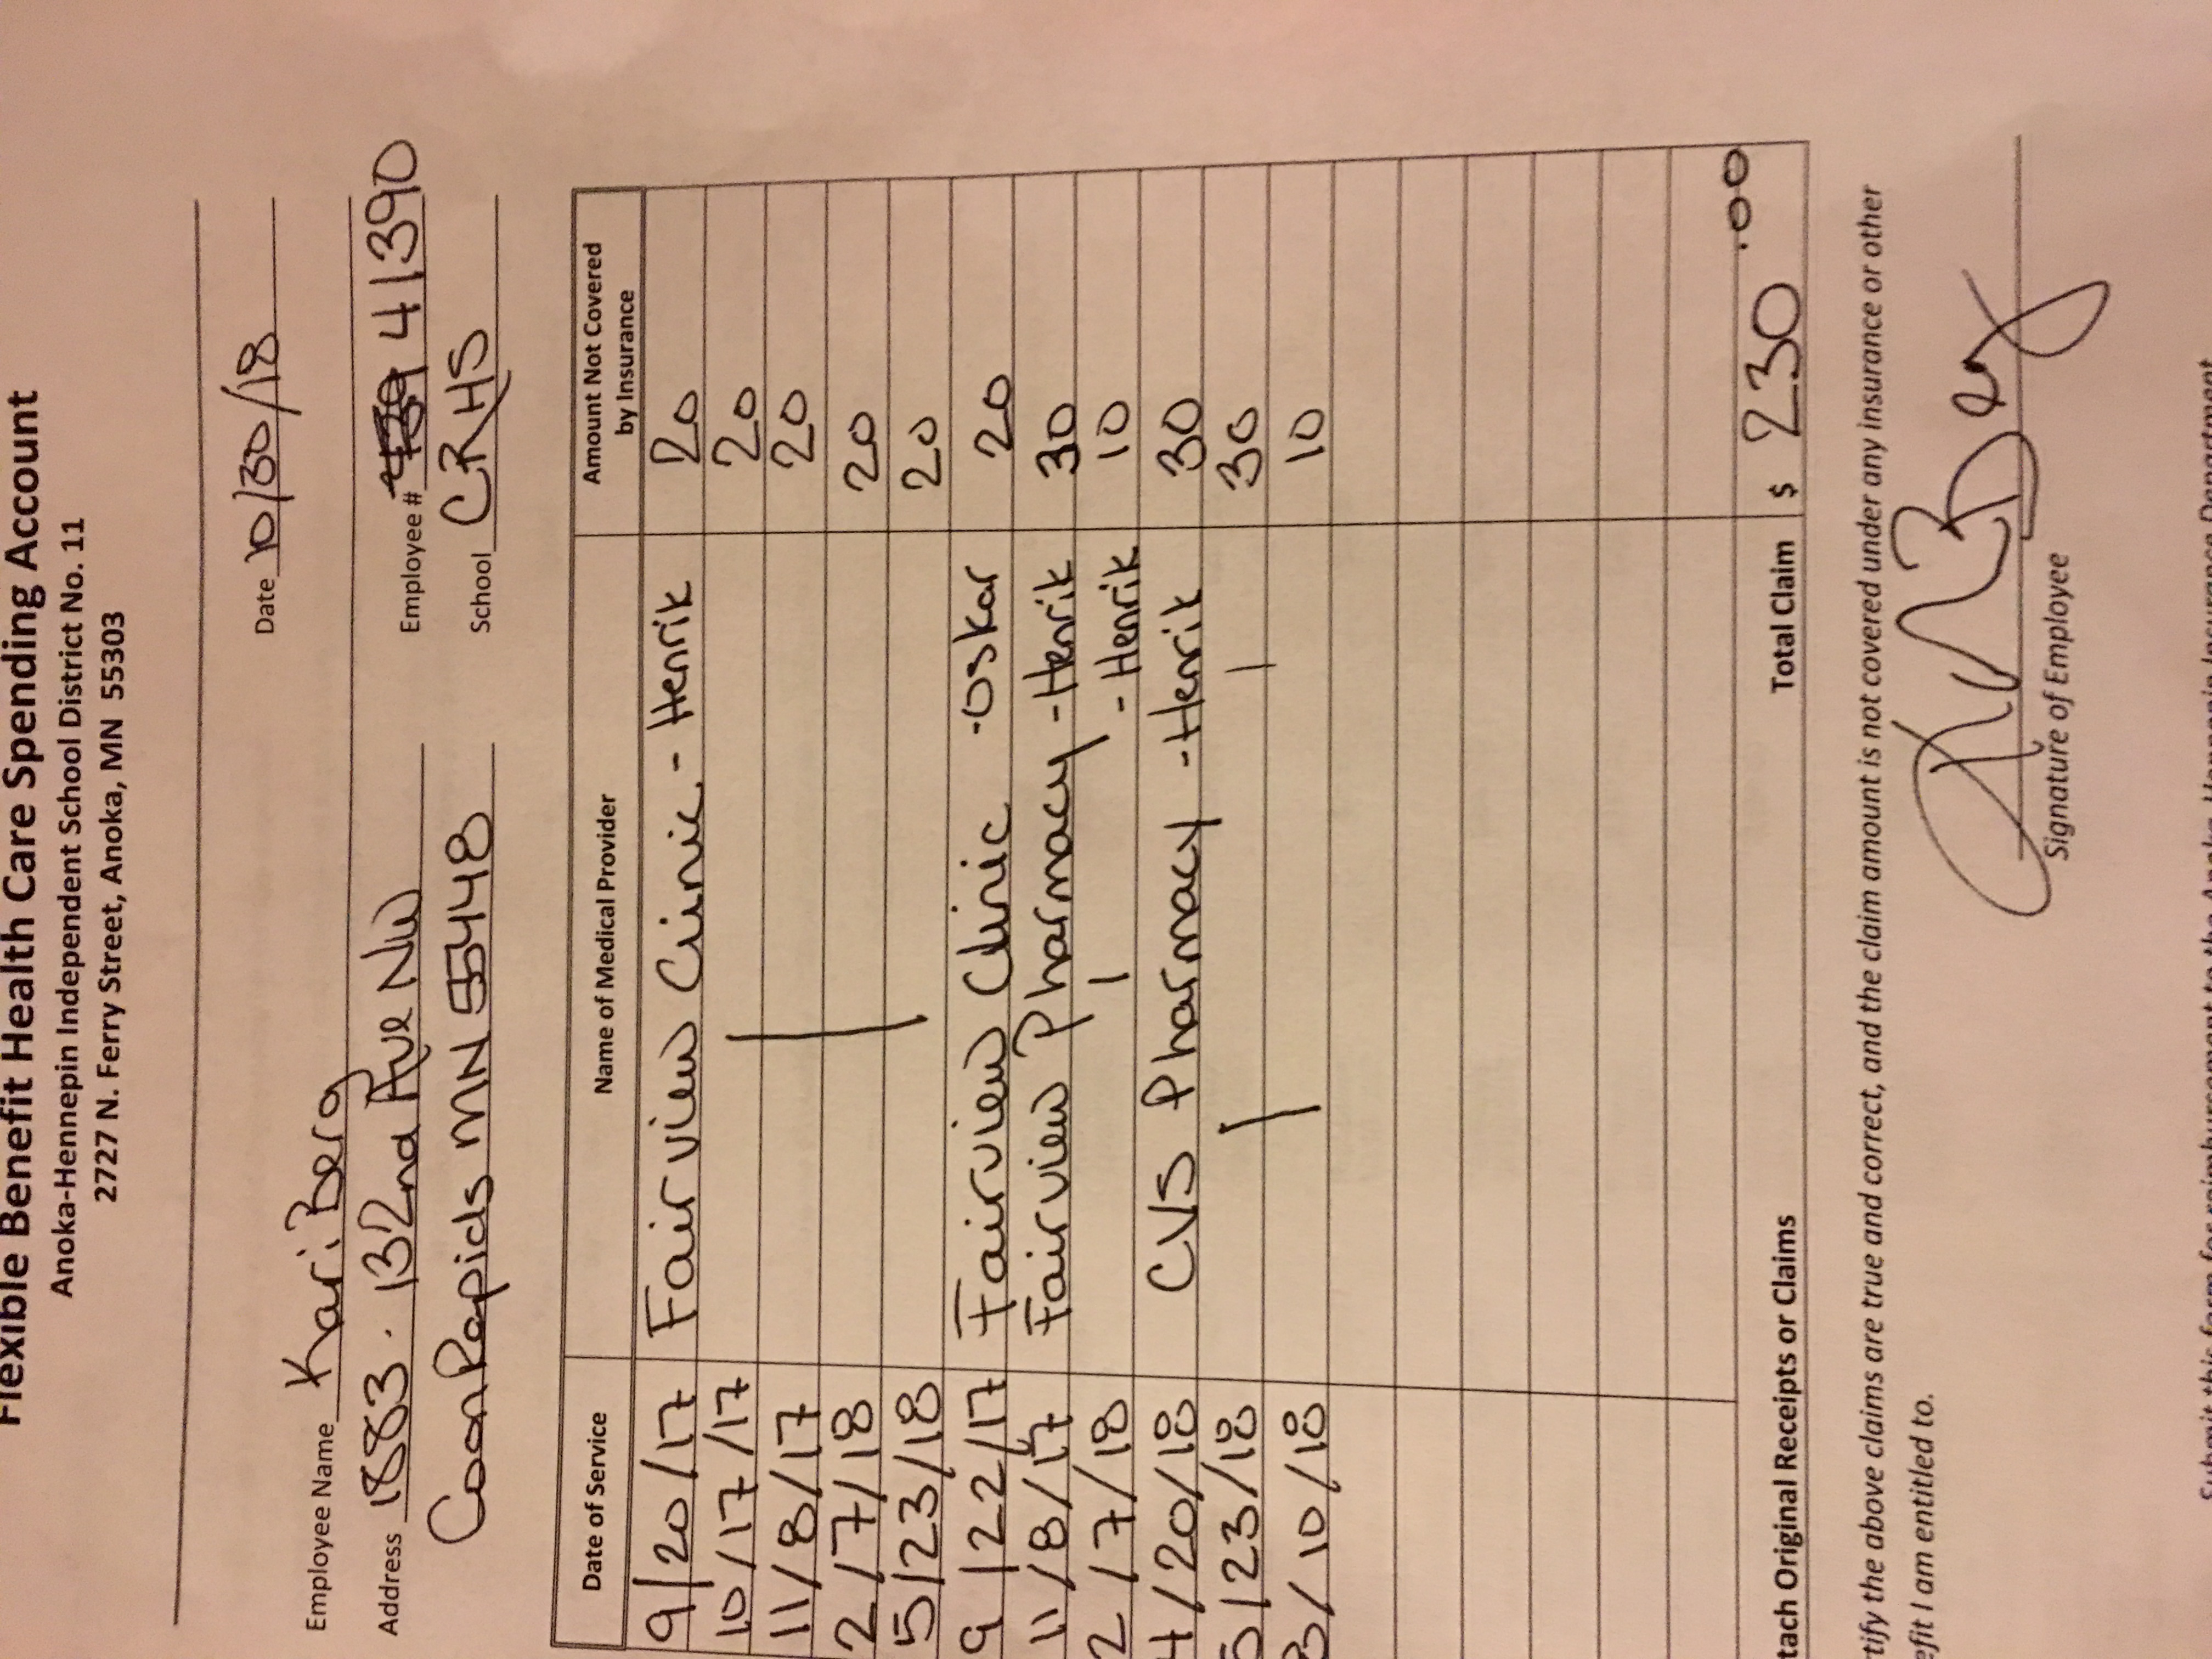 Flexible Benefit Health Care Spending Account
Anoka-Hennepin Independent School District No. 11
2727 N. Ferry Street, Anoka, MN 55303
Date 10/30/18
Employee Name Kari Berg
Address 1883 . 132nd Ave NW Employee # 41390
Coon Rapids MN 55448 School CRHS
Date of Service Name of Medical Provider Amount Not Covered by Insurance
9/20/17 Fairview Clinic - Henrik 20
10/17/17 20
11/8/17 20
2/7/18 20
5/23/18 20
9/22/17 Fairview Clinic - Oskar 20
11/8/17 Fairview Pharmacy - Henrik 30
2/7/18 - Henrik 10
4/20/18 CVS Pharmacy - Henrik 30
5/23/18 30
3/10/18 10
tach Original Receipts or Claims Total Claim $ 230.00
rtify the above claims are true and correct, and the claim amount is not covered under any insurance or other
efit I am entitled to.
Signature of Employee
Submit this form for reimbursement to the Anoka-Hennepin Insurance Department